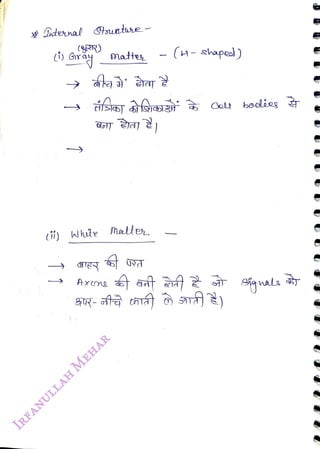 * Internal Structure -
(धूसर)
(i) Gray matter - (H - shaped)
→ बीच में होता है
→ तंत्रिका कोशिकाओं के Cell bodies से
बना होता है।
→
(ii) White Matter -
→ बाहर की परत
→ Axons की बनी होती है जो signals को
ऊपर-नीचे लाती ले जाती है।
IRFANULLAH MEHAR